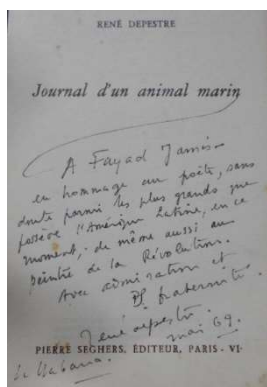 RENÉ DEPESTRE
Journal d'un animal marin
A Fayad Jamis
en hommage au poète, sans
doute parmi les plus grands que
possève l'Amérique Latine, en ce
moment, de même aussi au
peintre de la Révolution.
Avec admiration et
fraternité
René Depestre
La Habana. mai 69.
PIERRE SEGHERS, ÉDITEUR, PARIS - VIe